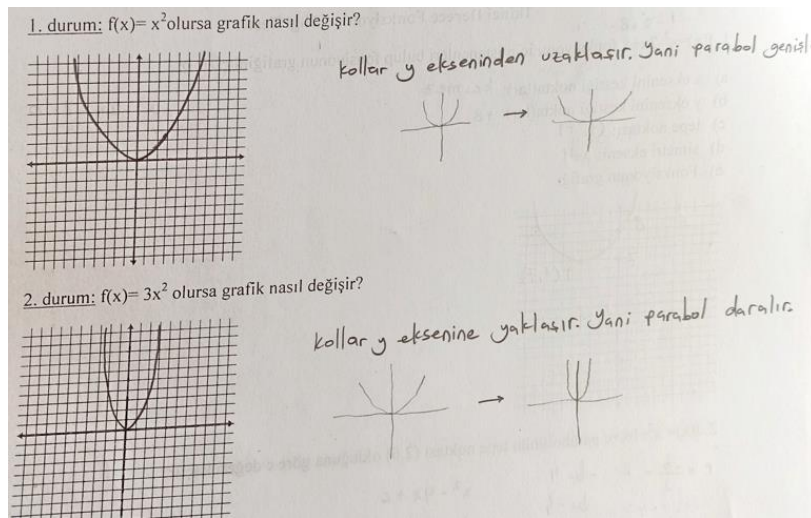 1. durum: f(x)= x²olursa grafik nasıl değişir?
kollar y ekseninden uzaklaşır. Yani parabol genişl
2. durum: f(x)= 3x² olursa grafik nasıl değişir?
kollar y eksenine yaklaşır. Yani parabol daralır.